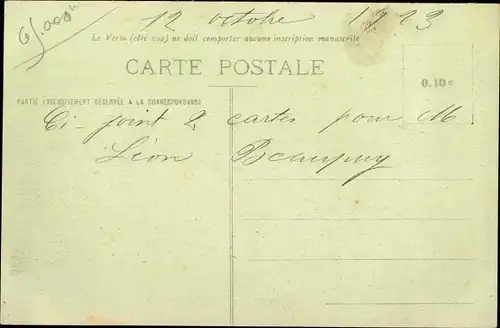 65.000h
12 octobre 1923
Le Verso (côté vue) ne doit comporter aucune inscription manuscrite
CARTE POSTALE
0.10c
PARTIE EXCLUSIVEMENT RÉSERVÉE A LA CORRESPONDANCE
Ci-joint 2 cartes pour M
Léon Beaupuy